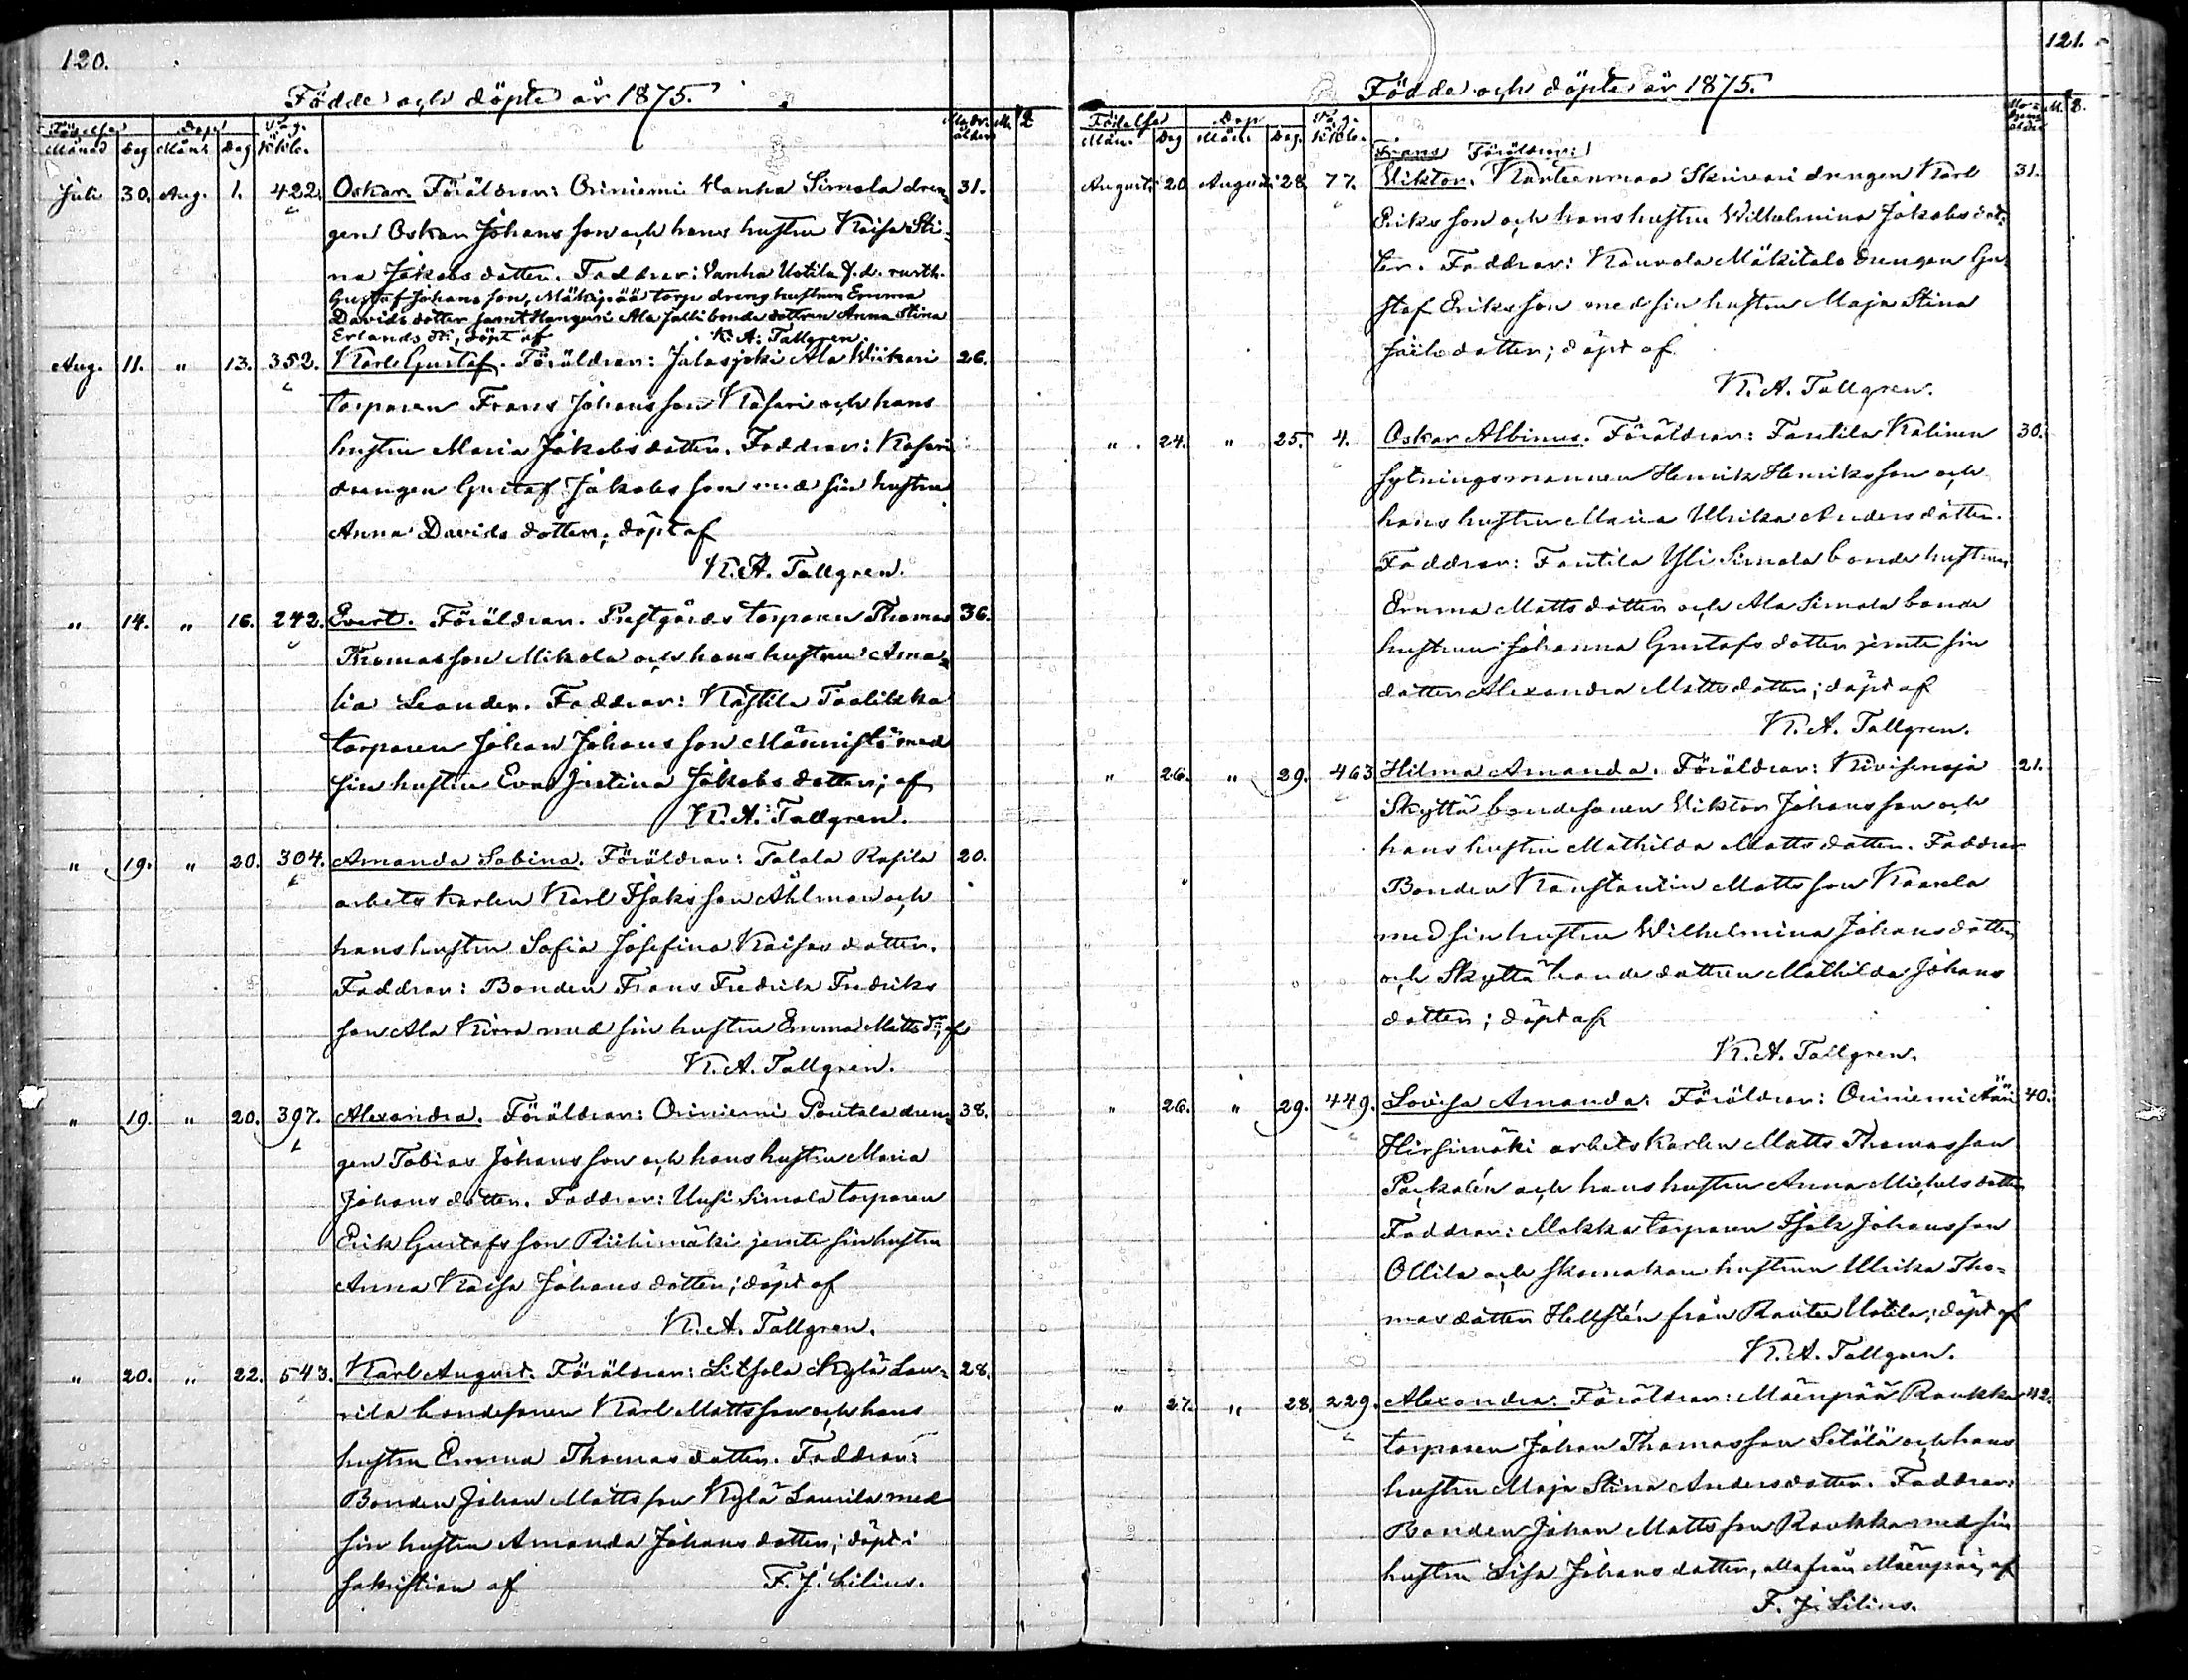 120.
Födde och döpte år 1875.
Födelse Dop Pag. i
Månad Dag Mån. Dag Kkb.
Modr. ålder M. Q
Juli 30. Aug. 1. 422. Oskar. Föräldrar: Oriniemi Vanha Simola dren= 31.
gen Oskar Johansson och hans hustru Kaisa Sti=
na Jakobsdotter. Faddrar: Vanha Uotila f.d. rusth.
Gustaf Johansson, Mäkipää torp. dreng hustrun Emma
Davidsdotter samt Hanguri Ala Jalli bonde dottren Anna Stina
Erlands dr; döpt af K. A. Tallgren.
Aug. 11. " 13. 352. Karl Gustaf. Föräldrar: Jalasjoki Ala Wiikari 26.
torparen Frans Johansson Kasari och hans
hustru Maria Jakobsdotter. Faddrar: Kasari
drengen Gustaf Jakobsson med sin hustru
Anna Davids dotter; döpt af
K. A. Tallgren.
" 14. " 16. 242. Evert. Föräldrar. Prestgårds torparen Thomas 36.
Thomasson Mikola och hans hustru Ama=
lia Leander. Faddrar: Kostila Taalikka
torparen Johan Johansson Männistö med
sin hustru Eva Justina Jakobs dotter; af
K. A. Tallgren.
" 19. " 20. 304. Amanda Sabina. Föräldrar: Talala Rasila 20.
arbets karlen Karl Isaksson Åhlman och
hans hustru Sofia Josefina Kaisas dotter.
Faddrar: Bonden Frans Fredrik Fredriks
son Ala Kirra med sin hustru Emma Matts dr; af
K. A. Tallgren.
" 19. " 20. 397. Alexandra. Föräldrar: Oriniemi Pontala dren= 38.
gen Tobias Johansson och hans hustru Maria
Johans dotter. Faddrar: Uusi Simola torparen
Erik Gustafsson Riihimäki jemte sin hustru
Anna Kaisa Johans dotter; döpt af
K. A. Tallgren.
" 20. " 22. 543. Karl August. Föräldrar: Sitsola Kylä Lau= 28.
rila bondesonen Karl Mattsson och hans
hustru Emma Thomas dotter. Faddrar:
Bonden Johan Mattsson Kylä Laurila med
sin hustru Amanda Johans dotter; döpt i
sakristian af F. J. Lilius.
121.
Födde och döpte år 1875.
Födelse Dop Pag. i
Mån. Dag Mån. Dag. Kkb.
Moderns ålder M. Q.
Frans Föräldrar:
Augusti 20 Augusti 28 77. Wiktor. Kanteenmaa Skrivari drengen Karl 31.
Eriksson och hans hustru Wilhelmina Jakobs dot=
ter. Faddrar: Kauvola Mäkitalo drengen Gu=
staf Eriksson med sin hustru Maja Stina
dotter; döpt af
K. A. Tallgren.
" 24. " 25. 4. Oskar Albinus. Föräldrar: Fantila Kalinen 30.
sytningsmannen Henrik Henriksson och
hans hustru Maria Ulrika Andersdotter.
Faddrar: Fantila Yli Simola bonde hustrun
Emma Matts dotter och Ala Simola bonde
hustrun Johanna Gustafs dotter jemte sin
dotter Alexandra Matts dotter; döpt af
K. A. Tallgren.
" 26. " 29. 463 Hilma Amanda. Föräldrar: Kivisenoja 21.
Skyttä bondesonen Wiktor Johansson och
hans hustru Mathilda Matts dotter. Faddrar
Bonden Konstantin Mattsson Kaarela
med sin hustru Wilhelmina Johans dotter
och Skyttä bonde dottren Mathilda Johans
dotter; döpt af
K. A. Tallgren.
" 26. " 29. 449. Lovisa Amanda. Föräldrar: Oriniemi Ääri 40.
Hirsimäki arbets karlen Matts Thomasson
och hans hustru Anna Michels dotter
Faddrar: Makka torparen Isak Johansson
Ollila och skomakare hustrun Ulrika Tho=
mas dotter Hellstén från Rautee Uotila; döpt af
K. A. Tallgren.
" 27. " 28. 229. Alexandra. Föräldrar: Mäenpää Raukka 42.
torparen Johan Thomasson Setälä och hans
hustru Maja Stina Andersdotter. Faddrar:
Bonden Johan Mattsson Raukka med sin
hustru Lisa Johans dotter, Mäenpää; af
F. J. Lilius.